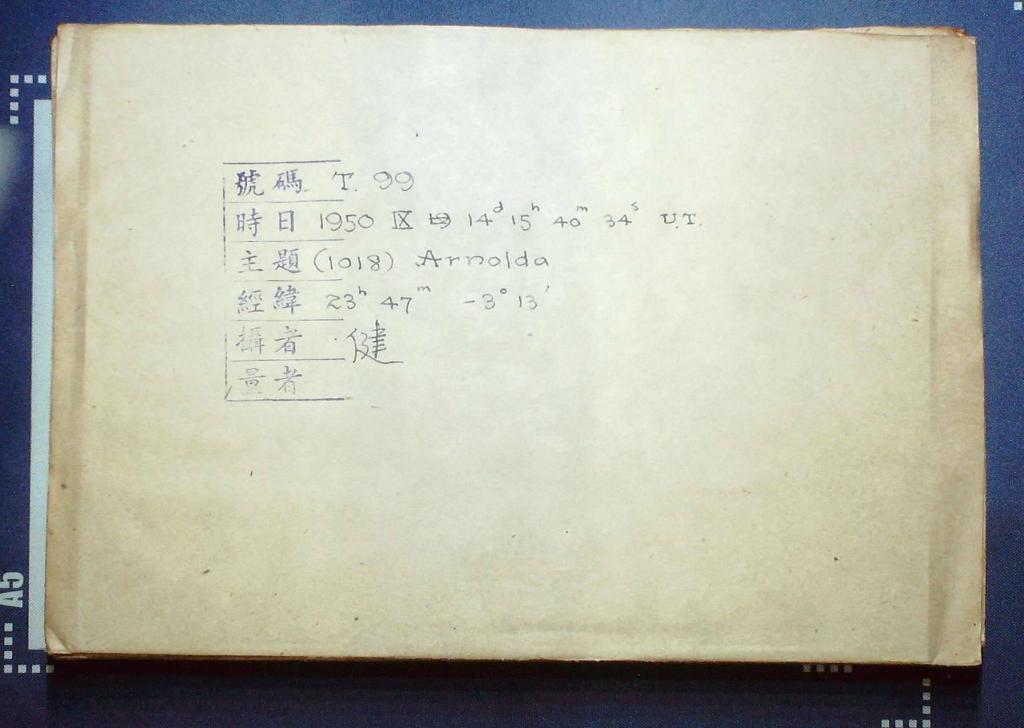 號碼 T. 99
時日 1950 IX 14ᵈ 15ʰ 40ᵐ 34ˢ U.T.
主題 (1018) Arnolda
經緯 23ʰ 47ᵐ -3°13'
攝者 健
量者
A5